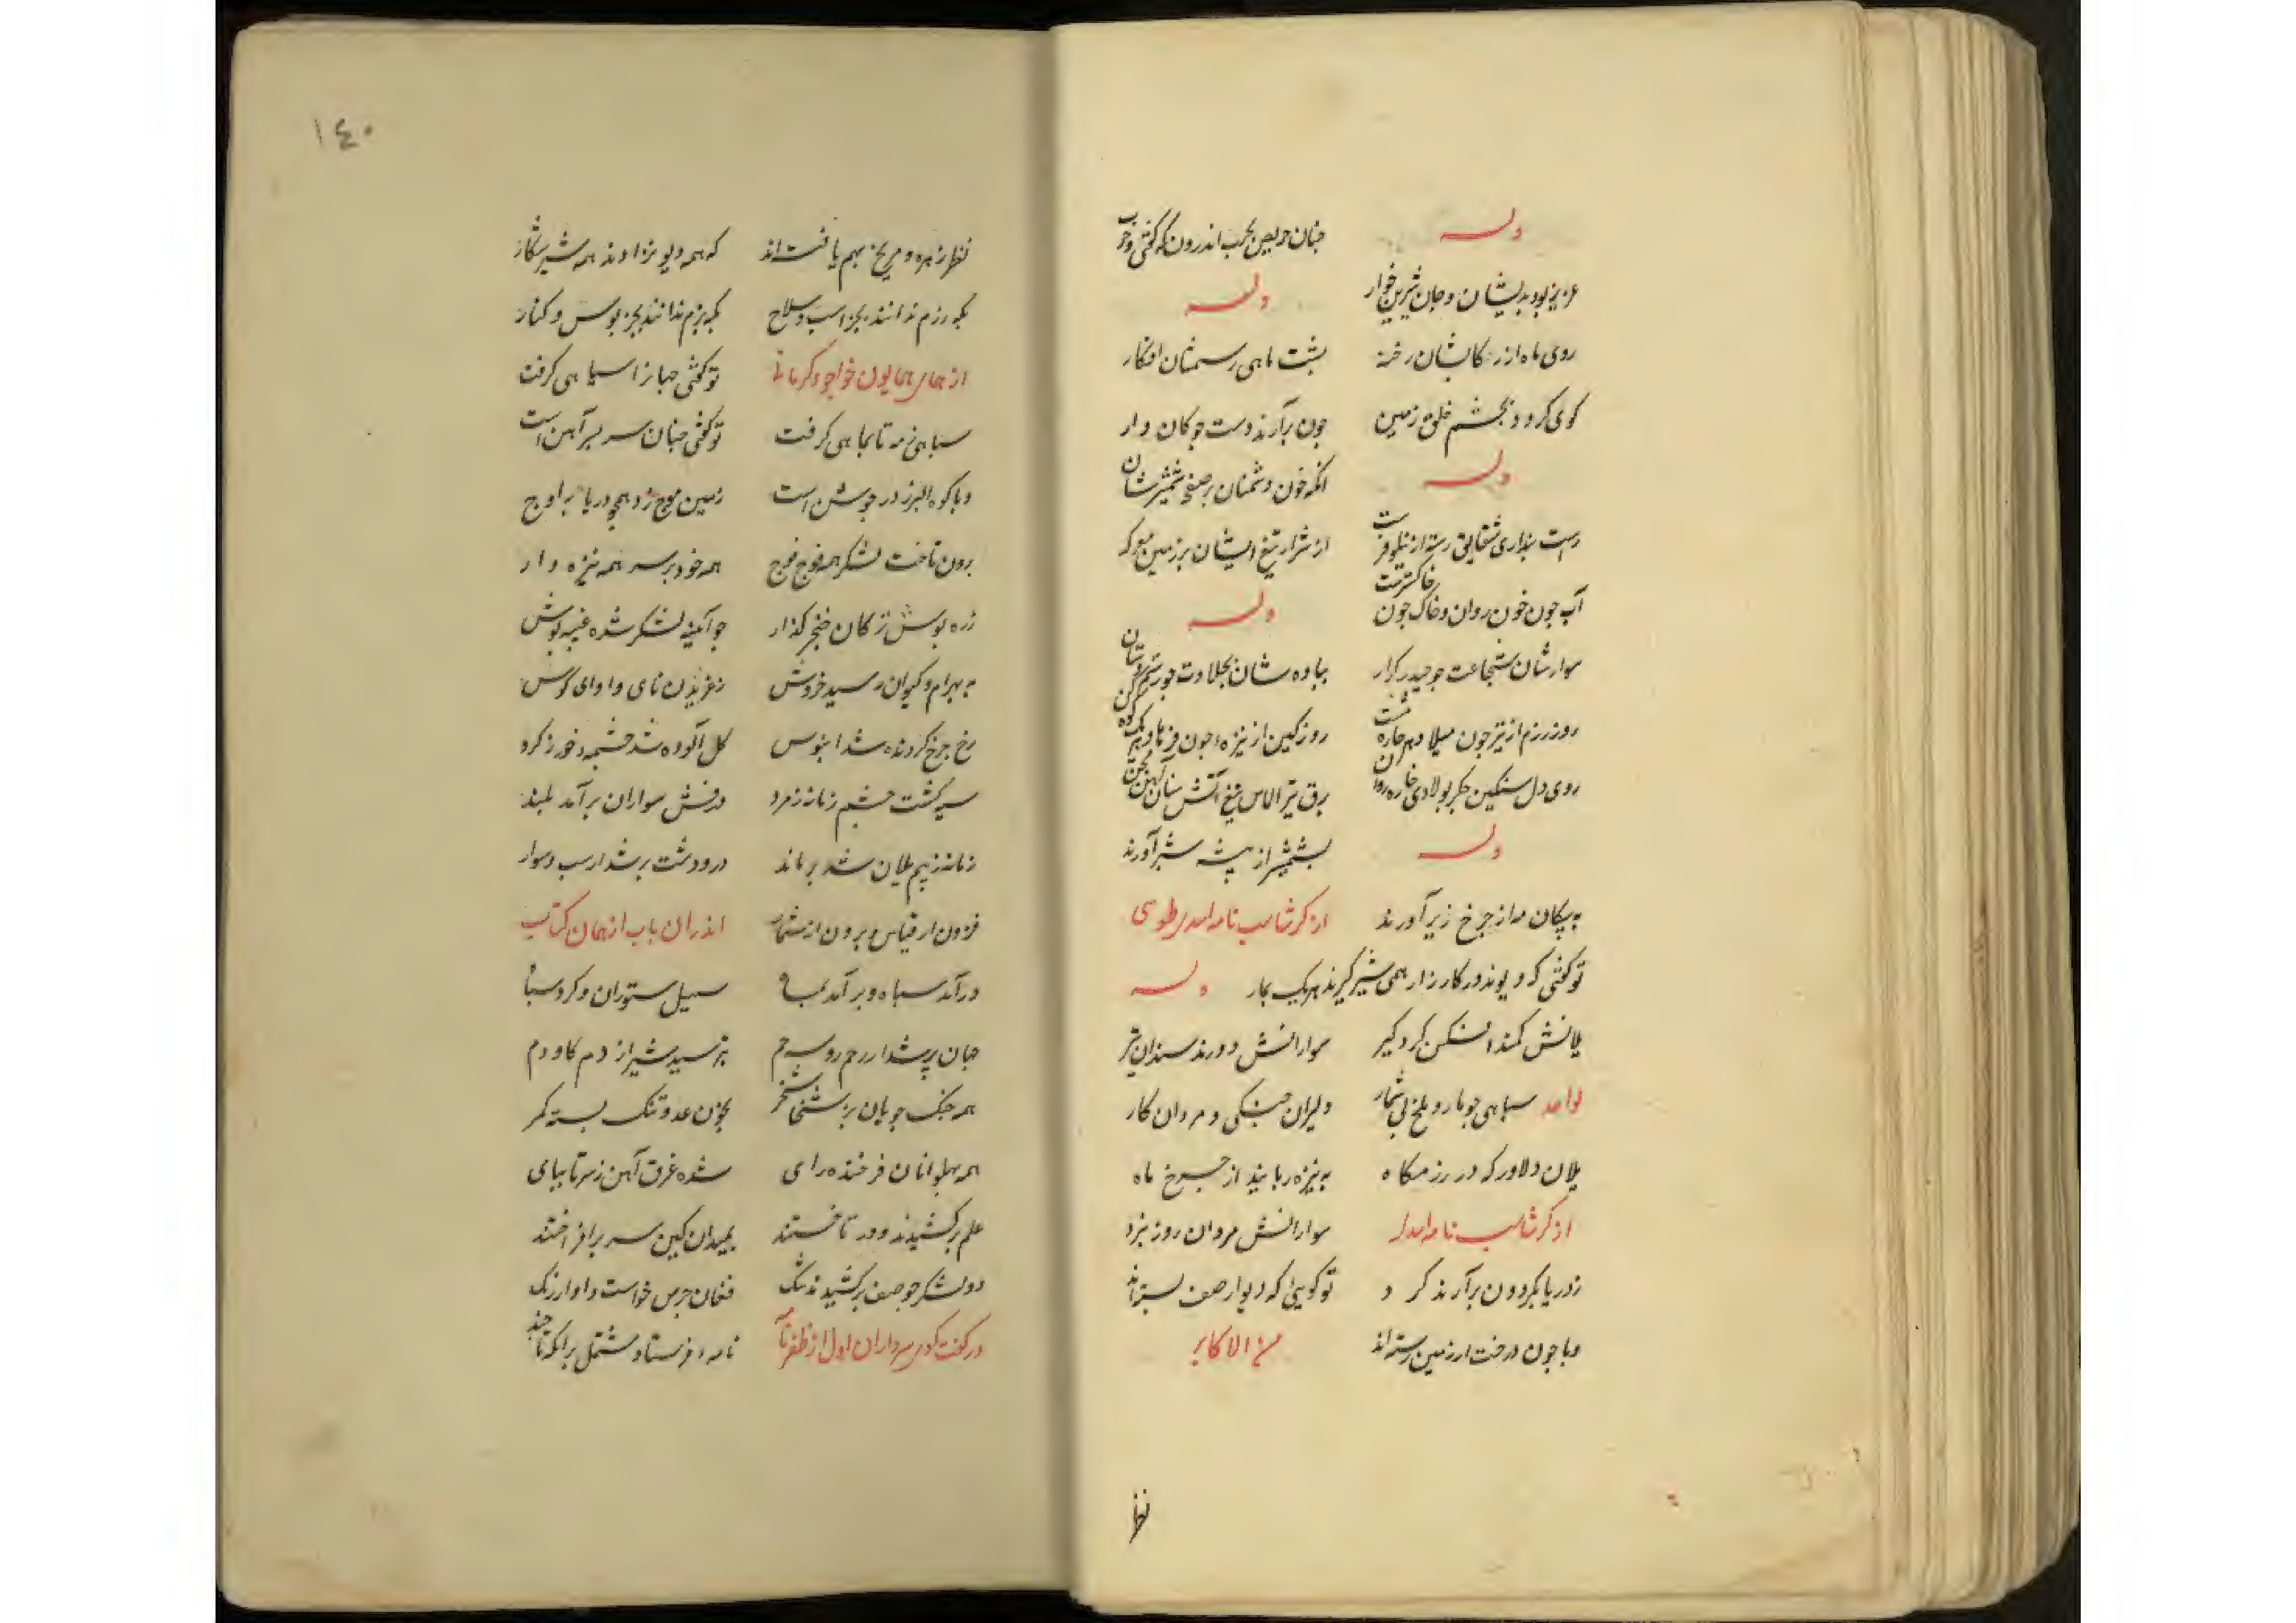 وله
چنان حریص بحرب اندرون که گفتی حرب
عزیز بود بدیشان و جان شیرین خوار
وله
روی ماه از رکابشان رخنه
پشت ماهی رسمشان افکار
کوی کردد بچشم خلق زمین
چون برآرند دست چوکان وار
وله
انکه خون دشمنان بر صفحهٔ شمشیرشان
راست پنداری شقایق رسته از نیلوفرست
از شرار تیغ ایشان بر زمین معرکه
آب چون خون روان و خاک چون خاکسترست
وله
سوارشان بشجاعت چو حیدر کرار
پیاده شان بجلادت چو رستم دستان
روز رزم از تیر چون
روز کین از نیزه چون
روی دل سنگین جگر پولادی
برق تیر الماس تیغ آتش سنان آهن
وله
بشمشیر از بیشه شیر آورند
به پیکان مه از چرخ زیر آورند
از کرشاسب نامه اسدی طوسی
تو کفتی که دیوند در کارزار همی شیر کیرند هر یک بمار
وله
یلانش کمند افکن کرد کیر
سوارانش دوزند سندان بتیر
لواحد سپاهی چو مار و ملخ بی شمار
دلیران جنکی و مردان کار
یلان دلاور که در رزمکاه
به نیزه ربایند از چرخ ماه
از کرشاسب نامه اسدی
سوارانش مردان روز نبرد
ز دریا بکردون برآرند کرد
تو کویی که دیوار صف بسته اند
و یا چون درخت از زمین رسته اند
من الاکابر
نظر
۱٤۰
نظر زهره و مریخ بهم یافته اند
که همه دیو نژادند همه شیر شکار
بکه رزم ندانند بجز اسب و سلاح
بکه بزم ندانند بجز بوس و کنار
از همای همایون خواجو کرمانی
تو کفتی جهانرا سیاهی کرفت
سپاهی ز مه تا بماهی کرفت
تو کفتی جهان سر بسر آهن است
و یا کوه البرز در جوشن است
زمین موج زد همچو دریا بر اوج
برون تاخت لشکر همه فوج فوج
همه خود بر سر همه نیزه دار
زره پوش ترکان خنجر گذار
چو آیینه لشکر شده غیبه پوش
به بهرام و کیوان رسید خروش
ز غریدن نای و اوای کوس
رخ چرخ کردنده شد ابنوس
کل آلوده شد چشمهٔ خور ز کرد
سیه کشت چشم زمانه ز مرد
درفش سواران برآمد بلند
زمانه ز بیم یلان شد
در و دشت پر شد ز اسب و سوار
فزون از قیاس و برون از شمار
اندران باب از همان کتاب
درآمد سپاه و برآمد بماه
سیل ستوران و کرد سپاه
جهان پر شد از
بترسید شیر از دم کاو دم
همه جنک جویان پرخاشخر
بخون عدو تنک بسته کمر
همه پهلوانان فرخنده رای
شده غرق آهن ز سر تا بپای
علم برکشیدند و در تاختند
بمیدان کین سر برافراختند
دو لشکر چو صف برکشیدند تنک
فغان جرس خواست و اواز زنک
نامه فرستاد مشتمل برانکه تا چند